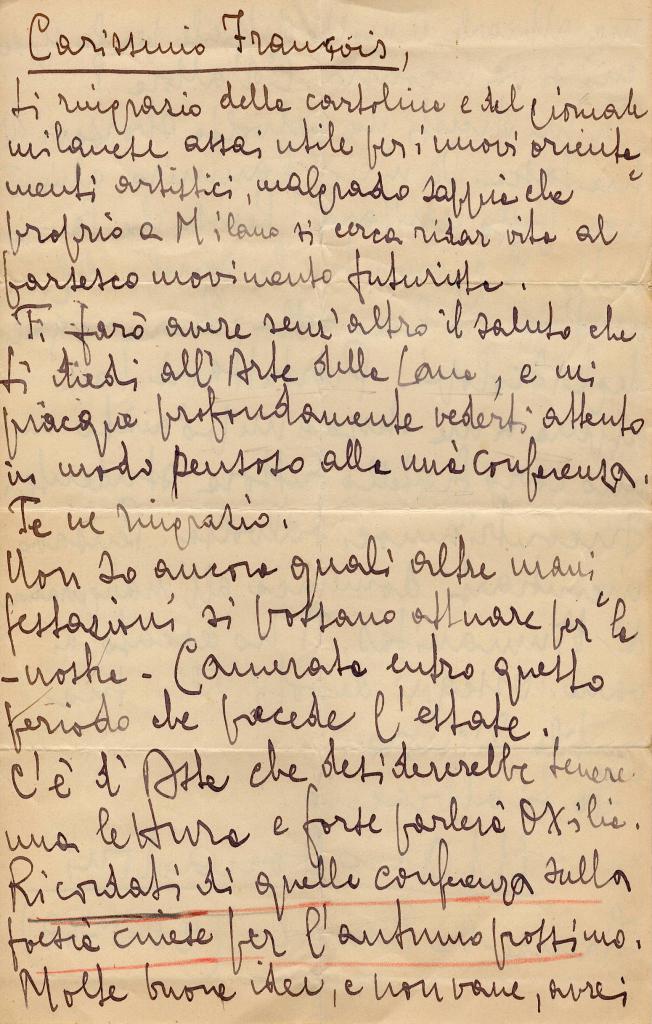 Carissimo François,
ti ringrazio della cartolina e del giornale
milanese assai utile per i nuovi orienta=
menti artistici, malgrado sappia che
proprio a Milano si cerca ridar vita al
farsesco movimento futurista.
Ti farò avere senz'altro il saluto che
ti diedi all'Arte della Lana, e mi
piacque profondamente vederti attento
in modo pensoso alla mia conferenza.
Te ne ringrazio.
Non so ancora quali altre mani
festazioni si possano attuare per "la
-nostra- Camerata entro questo
periodo che precede l'estate.
C'è d'Aste che desidererebbe tenere
una lettura e forse parlerà Oxilia.
Ricordati di quella conferenza sulla
poesia cinese per l'autunno prossimo.
Molte buone idee, e non vane, avrei